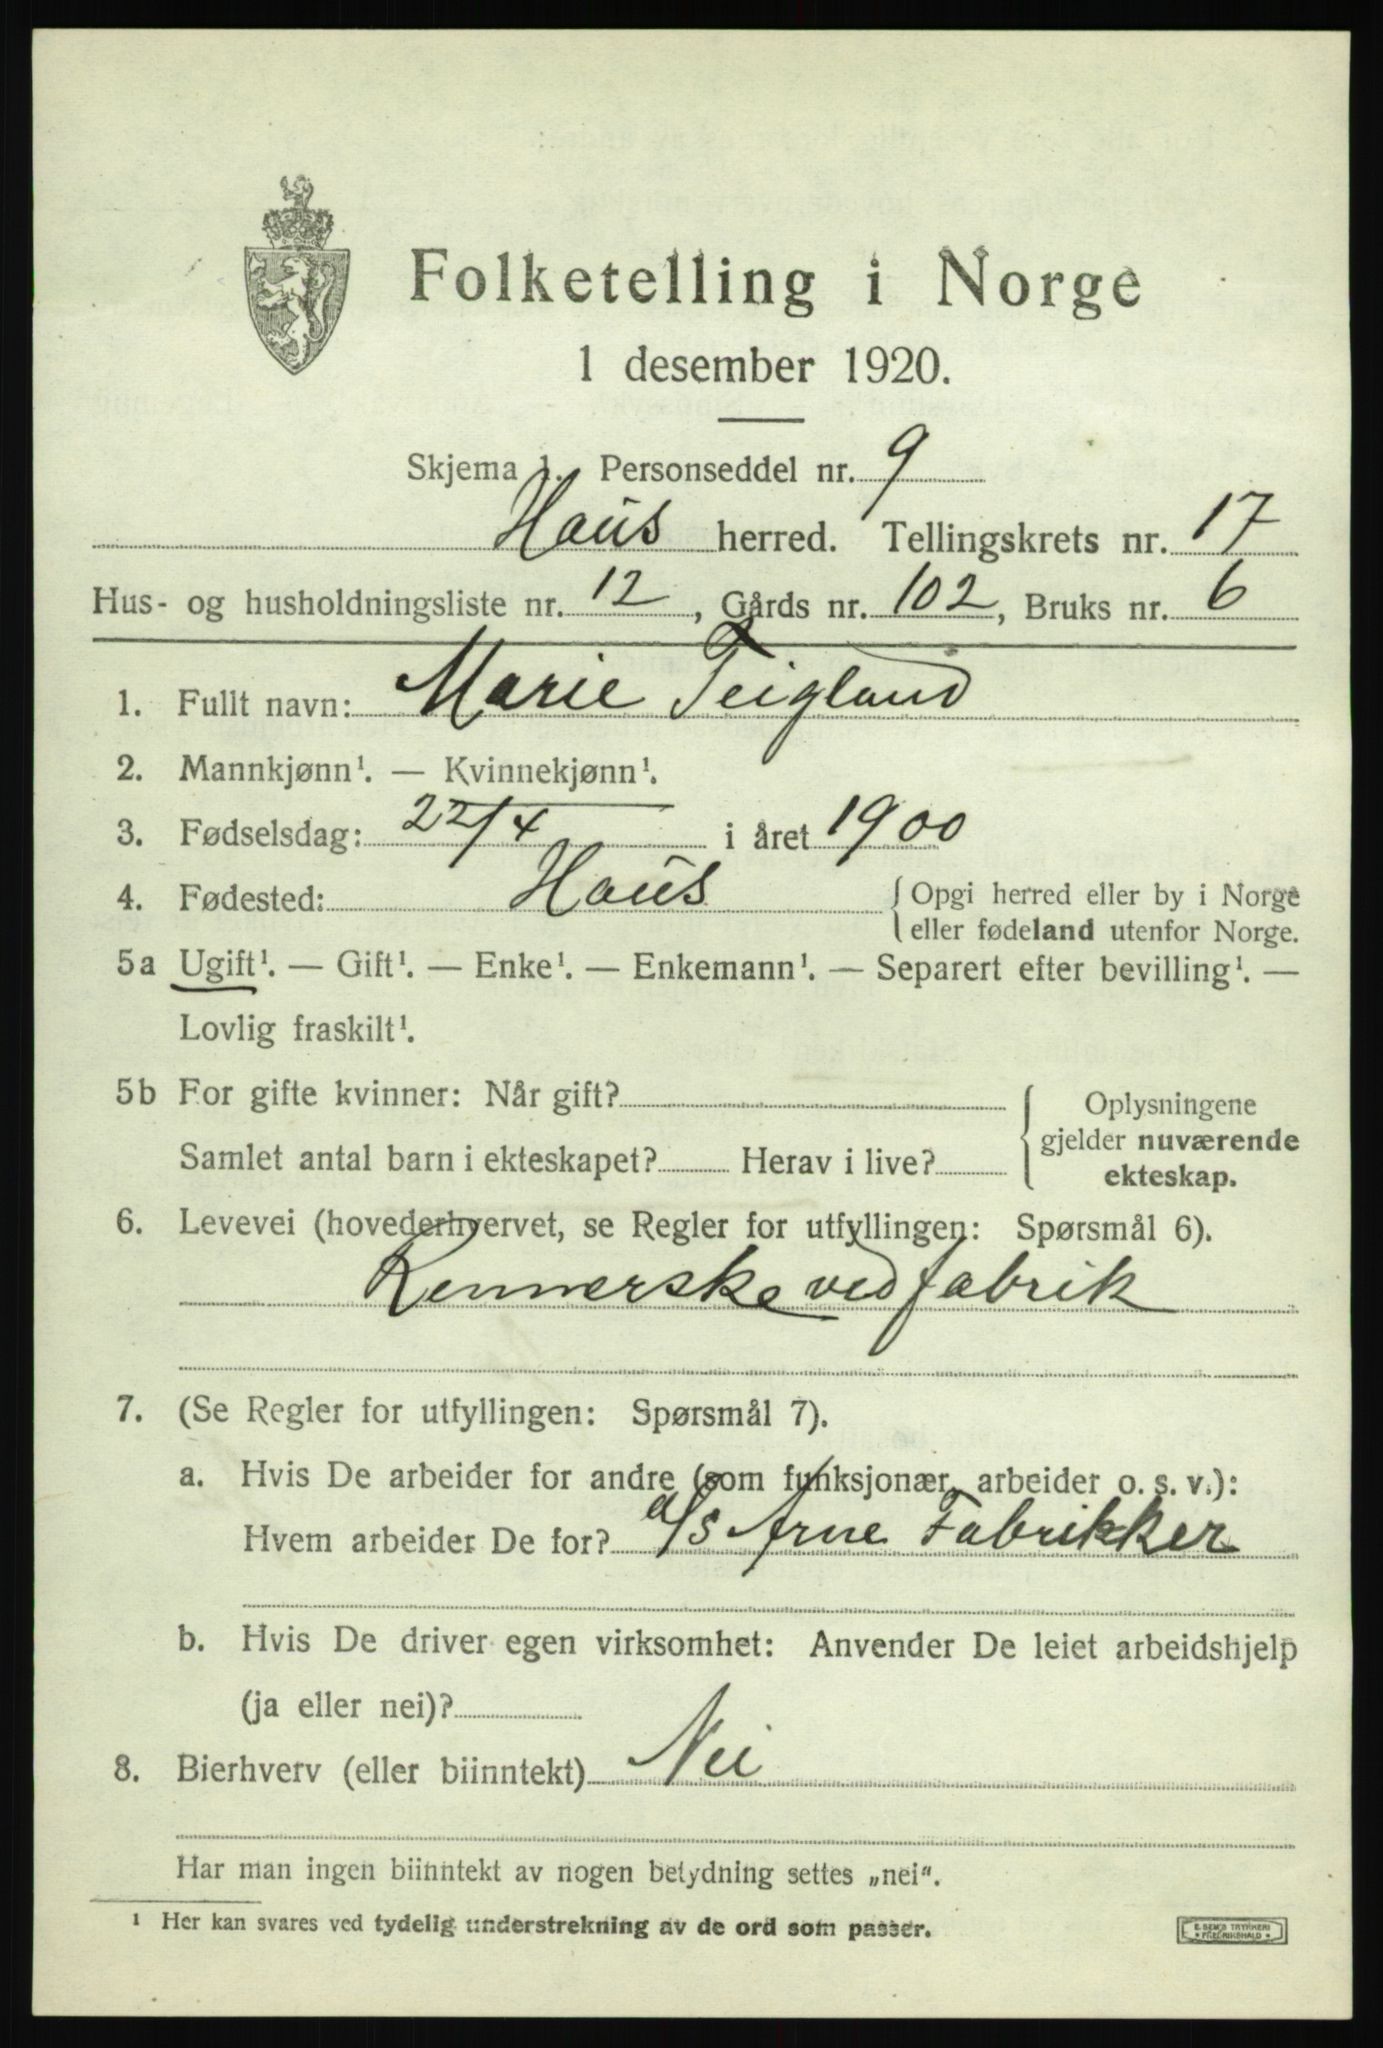 Folketelling i Norge
1 desember 1920.
Skjema 1. Personseddel nr. 9
Haus herred. Tellingskrets nr. 17
Hus- og husholdningsliste nr. 12, Gårds nr. 102, Bruks nr. 6
1. Fullt navn: Marie Teigland
2. Mannkjønn¹. — Kvinnekjønn¹.
3. Fødselsdag: 22/4 i året 1900
4. Fødested: Haus { Opgi herred eller by i Norge
eller fødeland utenfor Norge.
5a Ugift¹. — Gift¹. — Enke¹. — Enkemann¹. — Separert efter bevilling¹. —
Lovlig fraskilt¹.
5b For gifte kvinner: Når gift?
Samlet antal barn i ekteskapet? Herav i live?
Oplysningene
gjelder nuværende
ekteskap.
6. Levevei (hovederhvervet, se Regler for utfyllingen: Spørsmål 6).
ved fabrik
7. (Se Regler for utfyllingen: Spørsmål 7).
a. Hvis De arbeider for andre (som funksjonær, arbeider o. s. v.):
Hvem arbeider De for? a/s Arne Fabrikker
b. Hvis De driver egen virksomhet: Anvender De leiet arbeidshjelp
(ja eller nei)?
8. Bierhverv (eller biinntekt) Nei
Har man ingen biinntekt av nogen betydning settes „nei“.
¹ Her kan svares ved tydelig understrekning av de ord som passer.
E. SEM'S TRYKKERI
FREDRIKSHALD